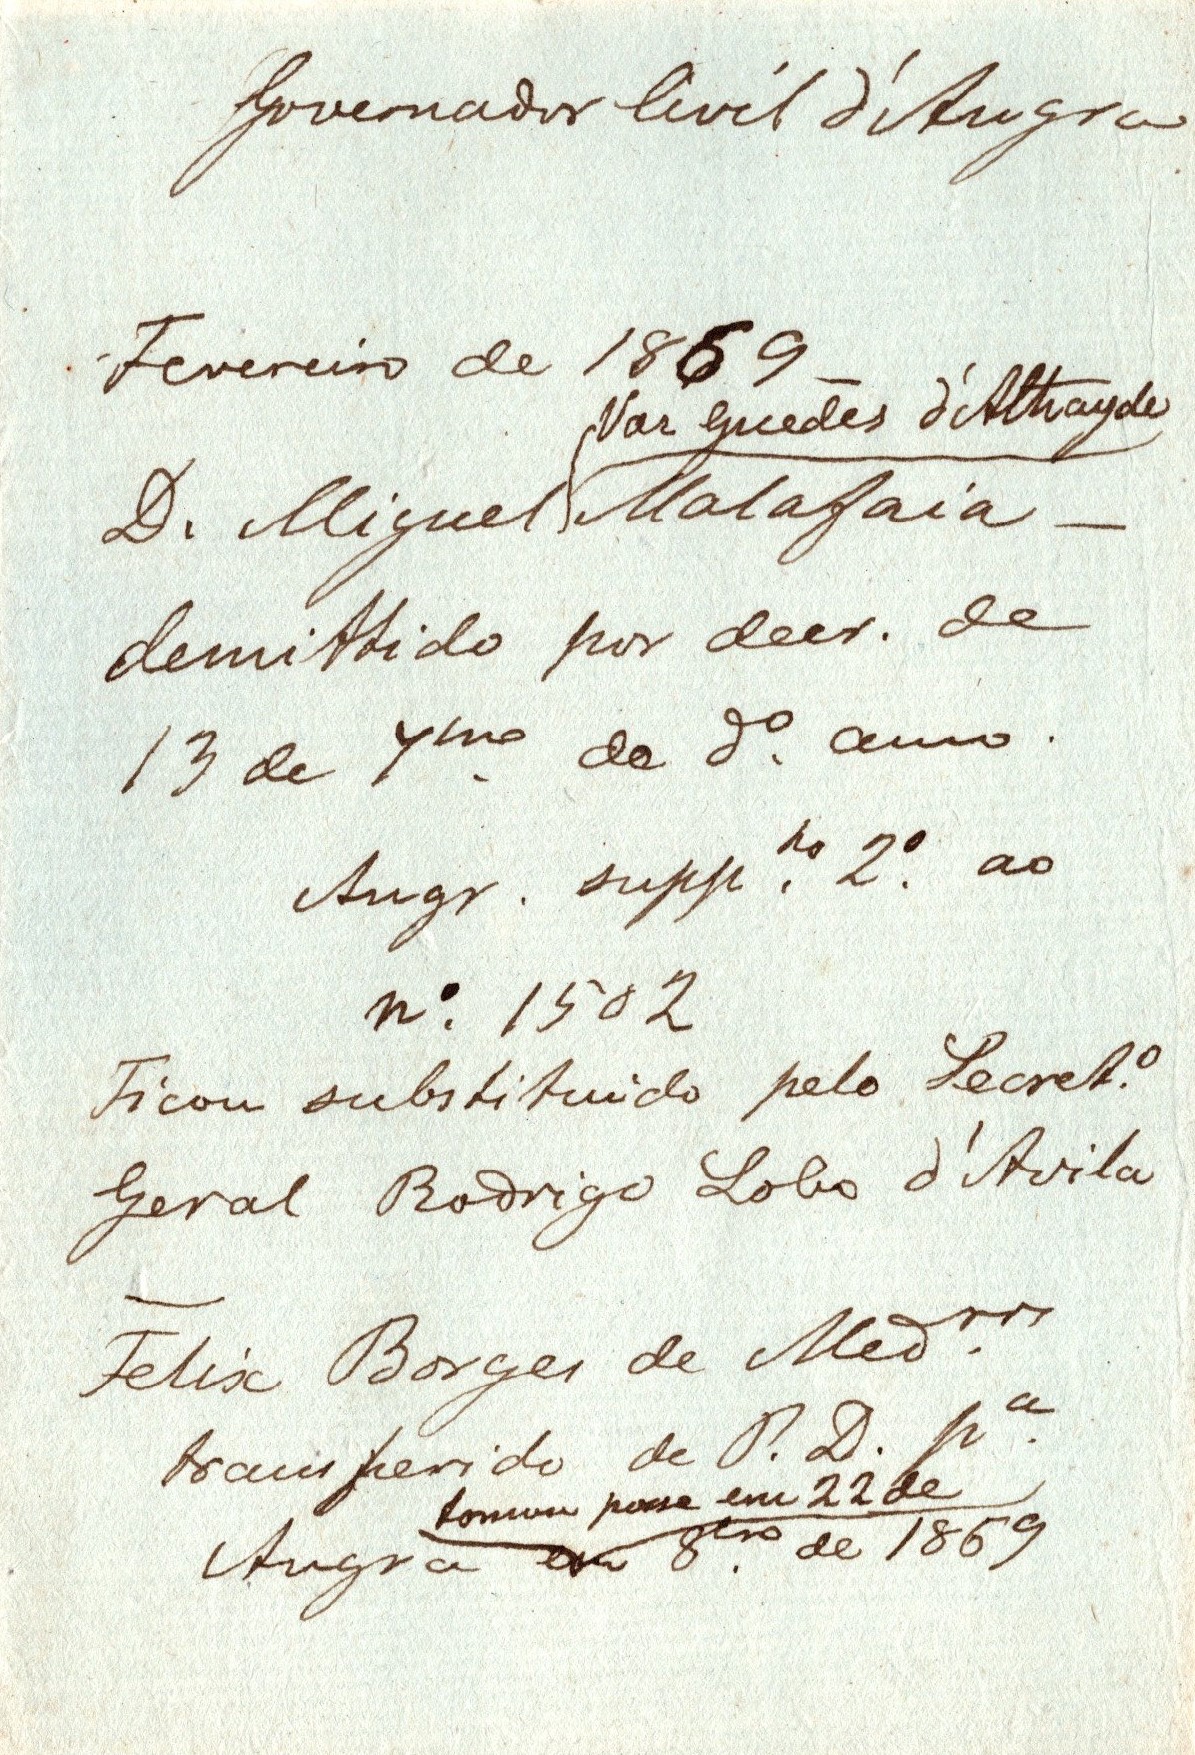 Governador Civil d'Angra
Fevereiro de 1869 —
Vaz Guedes d'Athayde
D. Miguel Malafaia —
demittido por decr. de
13 de 7bro de do. anno.
Angr. suppto. 2º. ao
nº. 1502
Ficou substituido pelo Secret.º
Geral Rodrigo Lobo d'Avila
—
Felix Borges de Medros
transferido de P. D. pª.
tomou posse em 22 de
Angra em 8bro. de 1869